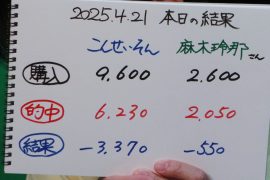 2025.4.21 本日の結果
こんせいそん 麻木玲那さん
購入 9.600 2.600
的中 6.230 2.050
結果 -3.370 -550